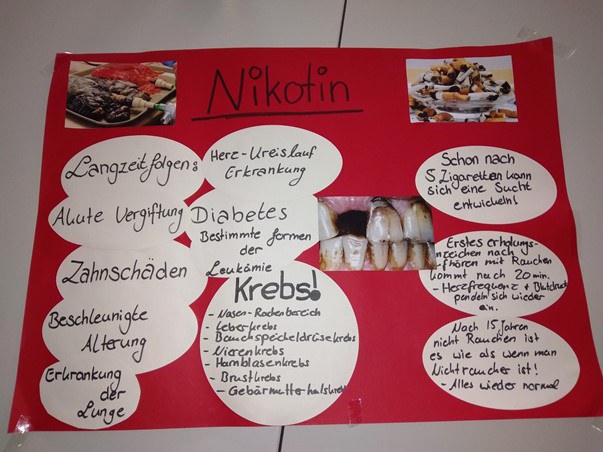 Nikotin
Langzeitfolgen:
Akute Vergiftung
Zahnschäden
Beschleunigte
Alterung
Erkrankung
der
Lunge
Herz-Kreislauf
Erkrankung
Diabetes
Bestimmte formen
der
Leukämie
Krebs!
- Nasen-Rachenbereich
- Leberkrebs
- Bauchspeicheldrüsekrebs
- Nierenkrebs
- Harnblasenkrebs
- Brustkrebs
- Gebärmutterhalskrebs
Schon nach
5 Zigaretten kann
sich eine Sucht
entwickeln!
Erstes erholungs-
nzeichen nach
fhören mit Rauchen
kommt nach 20 min.
- Herzfrequenz + Blutdruck
pendeln sich wieder
ein.
Nach 15 Jahren
nicht Rauchen ist
es wie als wenn man
Nichtraucher ist!
- Alles wieder normal